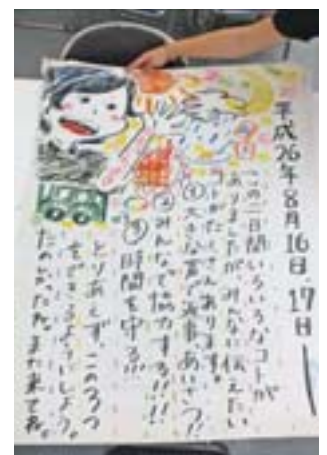 平成26年8月16日、17日
この二日間いろいろなコトが
ありましたがみんなに伝えたい
コトがたくさんあります。
①大きな声で返事、あいさつ!!
②みんなで協力する!!!
③時間を守る!!!
とりあえず、この3つ
をできるようにしよう。
たのしかったね。また来てね。